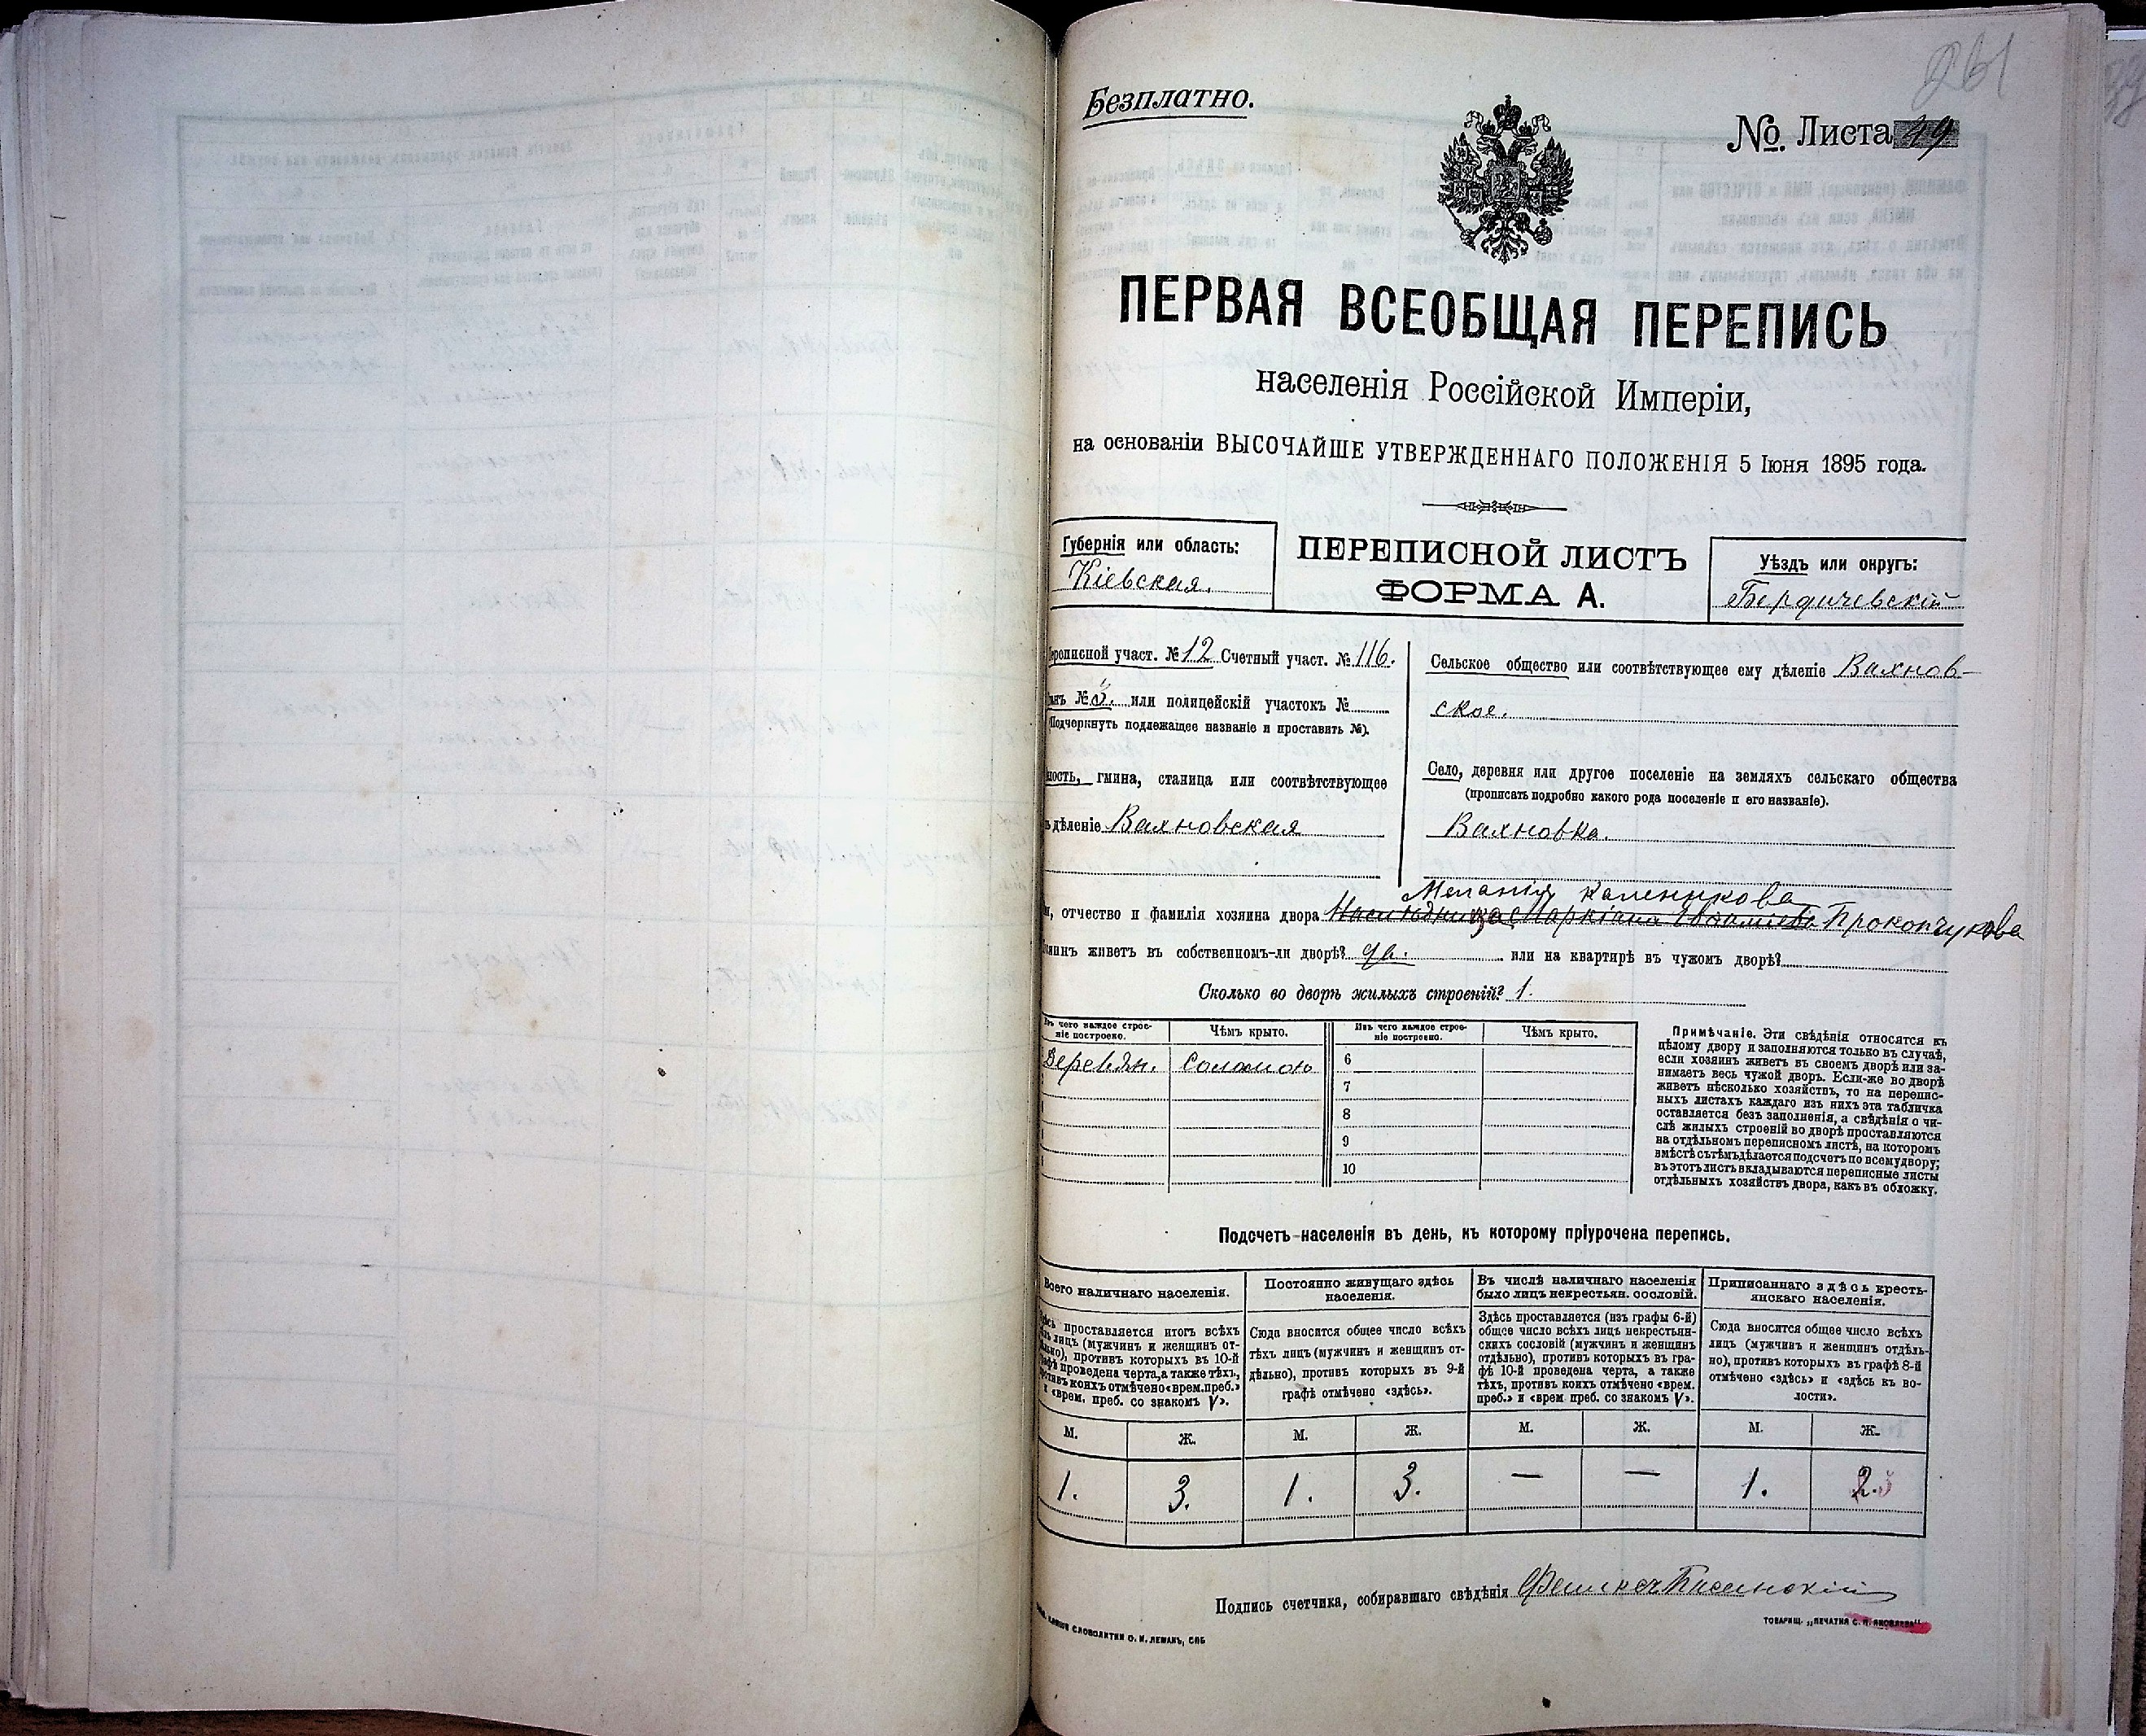 261
Безплатно.
№ Листа 49
ПЕРВАЯ ВСЕОБЩАЯ ПЕРЕПИСЬ
населенія Россійской Имперіи,
на основаніи ВЫСОЧАЙШЕ УТВЕРЖДЕННАГО ПОЛОЖЕНІЯ 5 Іюня 1895 года.
Губернія или область:
Кіевская.
ПЕРЕПИСНОЙ ЛИСТЪ
ФОРМА А.
Уѣздъ или округъ:
Бердичевскій
Переписной участ. № 12 Счетный участ. № 116.
№ 3. или полицейскій участокъ №
(Подчеркнуть подлежащее названіе и проставить №).
ность, гмина, станица или соотвѣтствующее
дѣленіе Вахновская
Сельское общество или соотвѣтствующее ему дѣленіе Вахнов-
ское.
Село, деревня или другое поселеніе на земляхъ сельскаго общества
(прописать подробно какого рода поселеніе и его названіе).
Вахновка.
Меланія Каленикова
отчество и фамилія хозяина двора Прокопчукова
живетъ въ собственномъ-ли дворѣ? да. или на квартирѣ въ чужомъ дворѣ?
Сколько во дворѣ жилыхъ строеній? 1.
чего каждое строе-
ніе построено.
Чѣмъ крыто.
Изъ чего каждое строе-
ніе построено.
Чѣмъ крыто.
Деревян. Соломою
6
7
8
9
10
Примѣчаніе. Эти свѣдѣнія относятся къ
цѣлому двору и заполняются только въ случаѣ,
если хозяинъ живетъ въ своемъ дворѣ или за-
нимаетъ весь чужой дворъ. Если-же во дворѣ
живетъ нѣсколько хозяйствъ, то на перепис-
ныхъ листахъ каждаго изъ нихъ эта табличка
оставляется безъ заполненія, а свѣдѣнія о чи-
слѣ жилыхъ строеній во дворѣ проставляются
на отдѣльномъ переписномъ листѣ, на которомъ
вмѣстѣ съ тѣмъ дѣлается подсчетъ по всему двору;
въ этотъ листъ вкладываются переписные листы
отдѣльныхъ хозяйствъ двора, какъ въ обложку.
Подсчетъ населенія въ день, къ которому пріурочена перепись.
Всего наличнаго населенія.
проставляется итогъ всѣхъ
лицъ (мужчинъ и женщинъ от-
дѣльно), противъ которыхъ въ 10-й
графѣ проведена черта, а также тѣхъ,
противъ коихъ отмѣчено «врем. преб.»
и «врем. преб. со знакомъ V».
Постоянно живущаго здѣсь
населенія.
Сюда вносится общее число всѣхъ
тѣхъ лицъ (мужчинъ и женщинъ от-
дѣльно), противъ которыхъ въ 9-й
графѣ отмѣчено «здѣсь».
Въ числѣ наличнаго населенія
было лицъ некрестьян. сословій.
Здѣсь проставляется (изъ графы 6-й)
общее число всѣхъ лицъ некрестьян-
скихъ сословій (мужчинъ и женщинъ
отдѣльно), противъ которыхъ въ гра-
фѣ 10-й проведена черта, а также
тѣхъ, противъ коихъ отмѣчено «врем.
преб.» и «врем преб. со знакомъ V».
Приписаннаго здѣсь кресть-
янскаго населенія.
Сюда вносится общее число всѣхъ
лицъ (мужчинъ и женщинъ отдѣль-
но), противъ которыхъ въ графѣ 8-й
отмѣчено «здѣсь» и «здѣсь къ во-
лости».
М. Ж. М. Ж. М. Ж. М. Ж.
1. 3. 1. 3. — — 1. 2. 3
Подпись счетчика, собиравшаго свѣдѣнія
СЛОВОЛИТНИ О. И. ЛЕМАНЪ, СПБ
ТОВАРИЩ. „ПЕЧАТНЯ С. П. ЯКОВЛЕВА“.